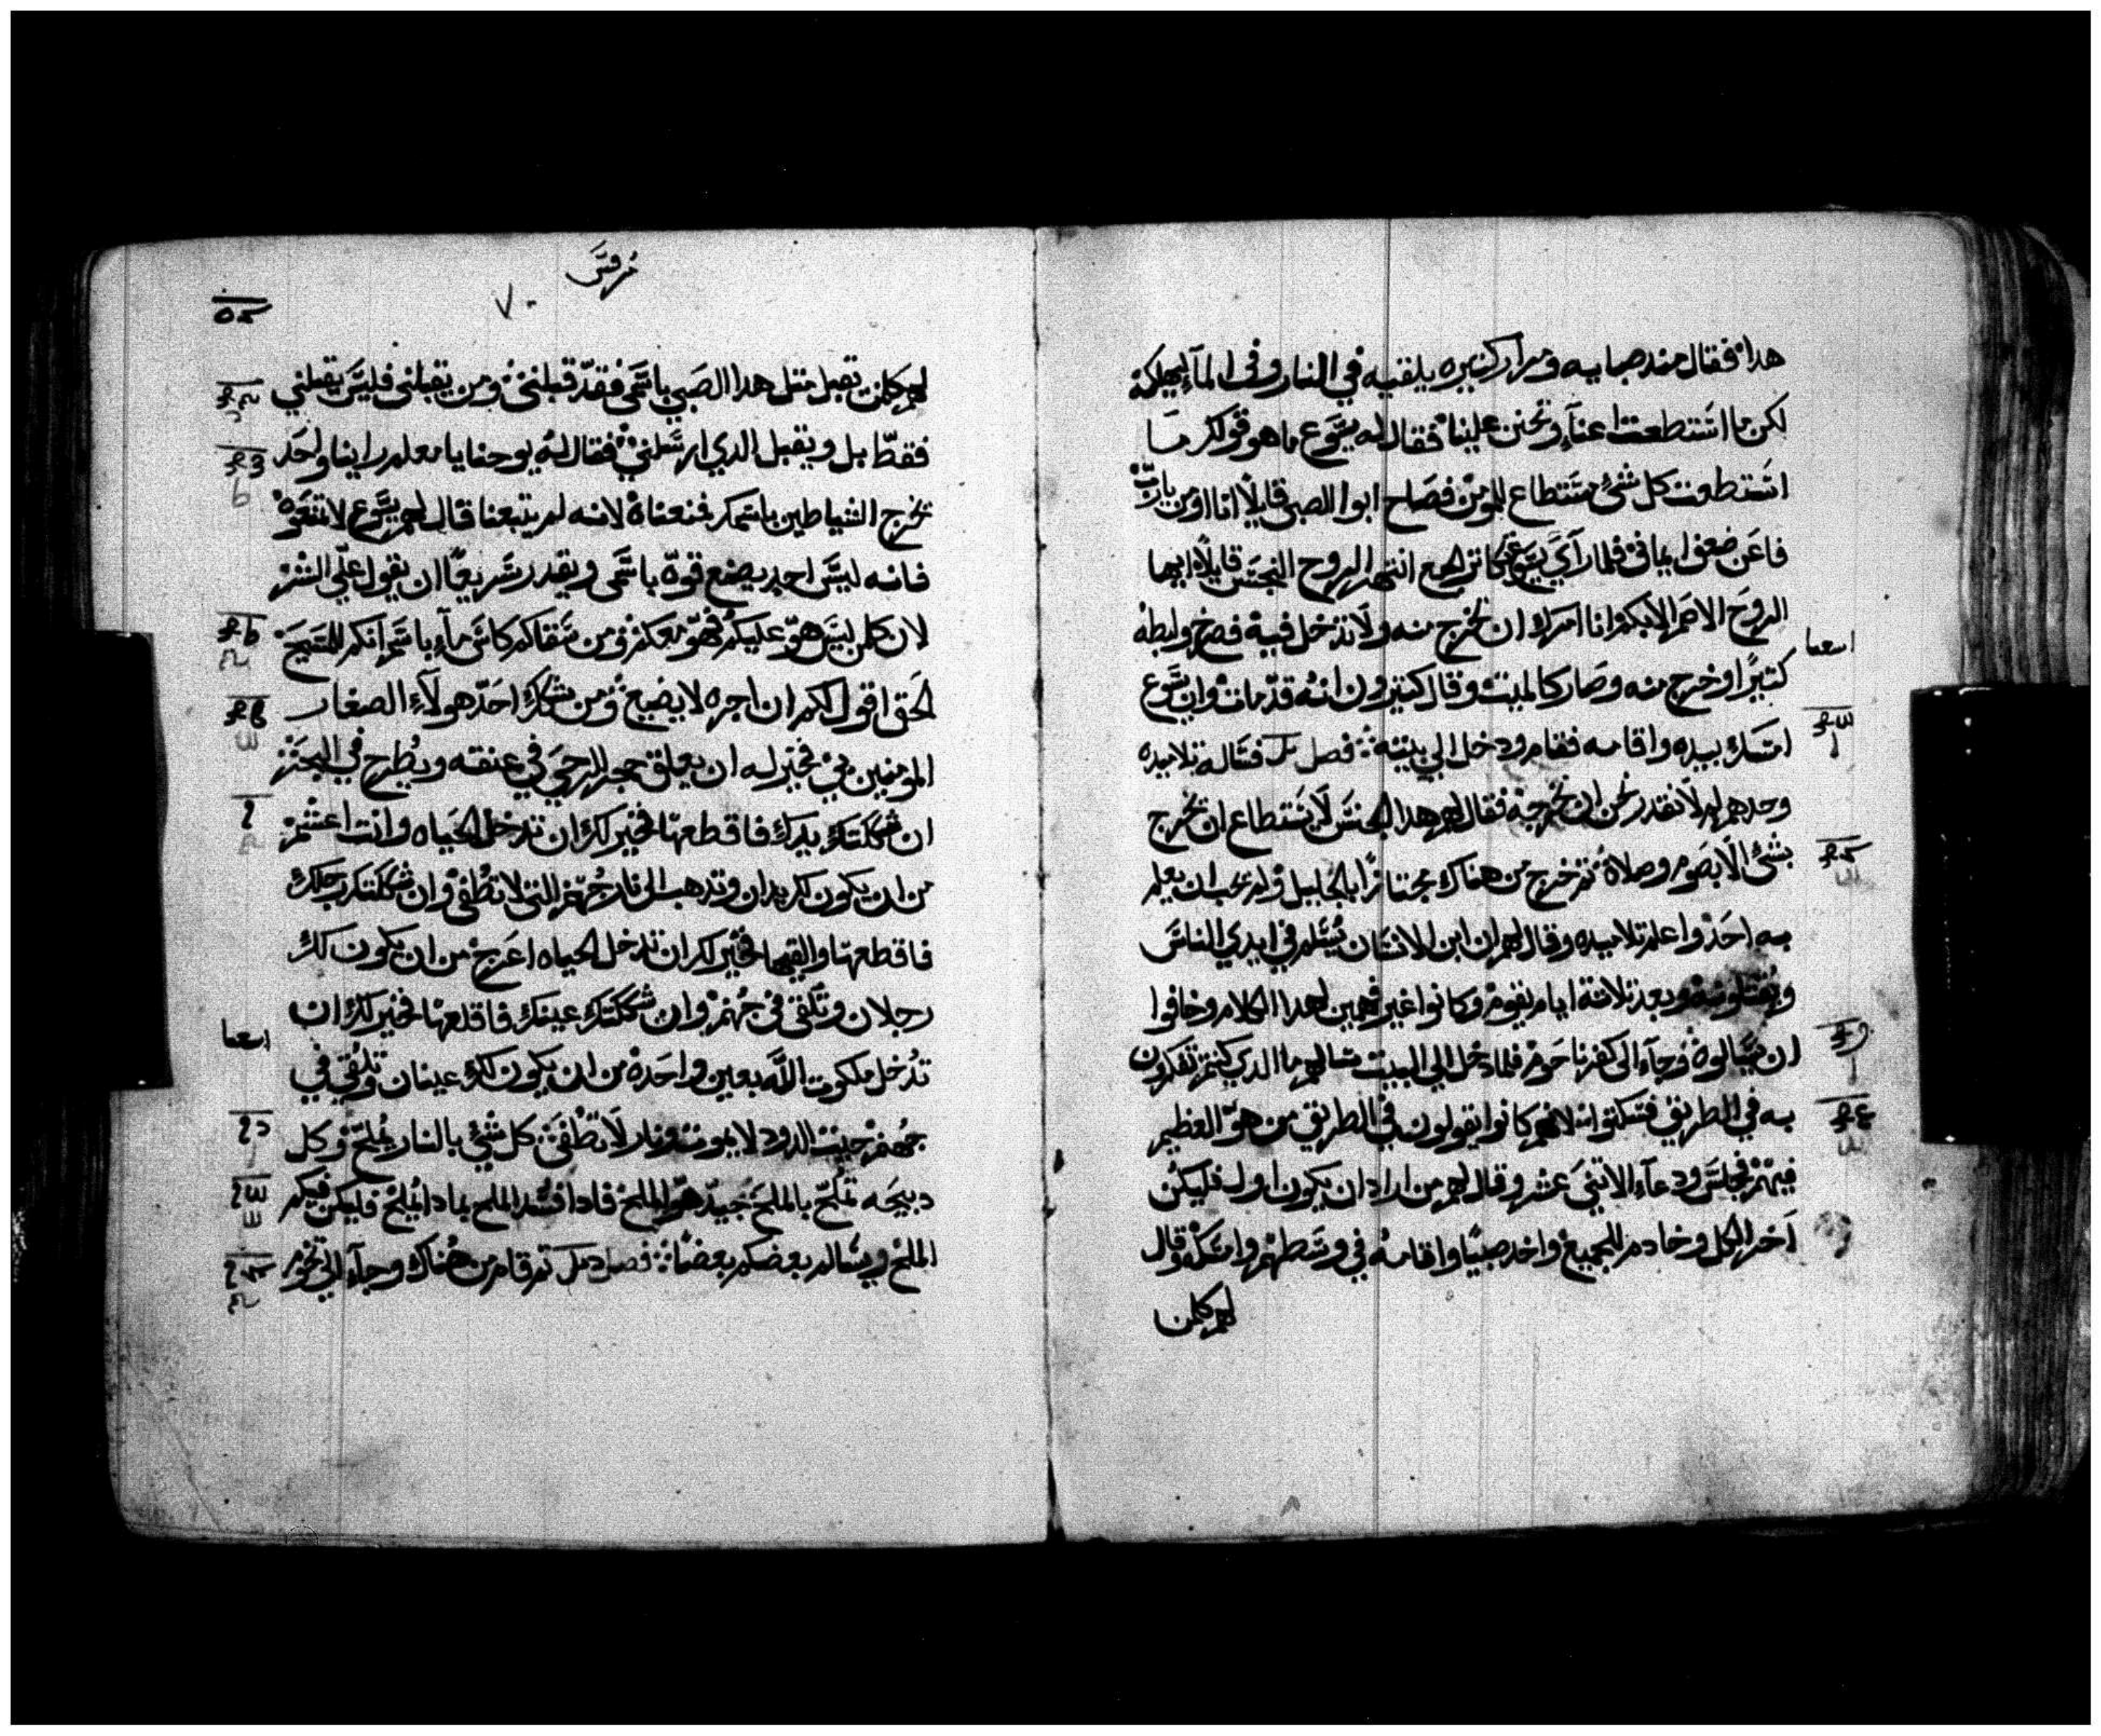 هدا فقال مند صبايه ومرار كثيره يلقيه في النار وفى المآ ليهلكه
لكن ما استطعت اعنآ وتحنن علينا فقال له يسوع ما هو قولك ما
استطعت كل شئ مستطاع للمومن فصاح ابوا الصبى قايلًا انا اومن يارب
فاعن ضعف ايمانى فلما رآي يسوع تكاتر الجمع انتهر الروح النجس قايلًا ايها
الروح الاصم الابكم انا امرك ان تخرج منه ولا تدخل فيه فصرخ ولبطه
كتيرًا وخرج منه وصار كالميت وقال كتيرون انه قد مات وان يسوع
امسك بيده واقامه فقام ودخل الي بيته فصل فساله تلاميده
وحدهم لم لا نقدر نحن ان نخرجه فقال لهم هدا الجنس لا يستطاع ان يخرج
بشئ الا بصوم وصلاة تم خرج من هناك مجتازًا بالجليل ولم يحب ان يعلم
به احد واعلم تلاميده وقال لهم ان ابن الانسان يسلم في ايدي الناس
ويقتلونه وبعد تلاتة ايام يقوم وكانوا غير فهمين لهدا الكلام وخافوا
ان يسالوه وجآء الى كفرناحوم فلما دخل الى البيت سالهم ما الدي كنتم تفكرون
به في الطريق فسكتوا لانهم كانوا يقولون في الطريق من هو العظيم
فيهم فجلس ودعآء الاتنى عشر وقال لهم من اراد ان يكون اول فليكن
آخر الكل وخادم للجميع واخد صبيًا واقامه في وسطهم وامسكه وقال
لهم كلمن
مرقس
٧٠
لهم كلمن تقبل متل هدا الصبي باسمى فقد قبلنى ومن يقبلنى فليس يقبلني
فقط بل ويقبل الدي ارسلني فقال له يوحنا يا معلم راينا واحد
يخرج الشياطين باسمك فمنعناه لانه لم يتبعنا قال لهم يسوع لا تمنعوه
فانه ليس احد يصنع قوة باسمى ويقدر سريعًا ان يقول علّي الشر
لان كلمن ليس هو عليكم فهو معكم ومن سقاكم كاس مآء باسم انكم للمسيح
الحق اقول لكم ان اجره لا يضيع ومن شكك احد هولآء الصغار
المومنين بي فخير له ان يعلق حجر الرحي في عنقه ويطرح في البحر
ان شككتك يدك فاقطعها فخير لك ان تدخل الحياه وانت اعشم
من ان يكون لك يدان وتدهب الى نار جهنم التى لا تطفى وان شككتك رجلك
فاقطعها والقيها فخير لك ان تدخل الحياه اعرج من ان يكون لك
رجلان وتلقى في جهنم وان شككتك عينك فاقلعها فخير لك ان
تدخل ملكوت الله بعين واحدة من ان يكون لك عينان وتلقي في
جهنم حيت الدود لا يموت ونار لا تطفى كل شئ بالنار يملح وكل
دبيحه تملح بالملح جيد هو الملح فادا فسد الملح بمادا يملح فليكن فيكم
الملح ويسالم بعضكم بعضًا فصل تم قام من هناك وجآء الى تخوم